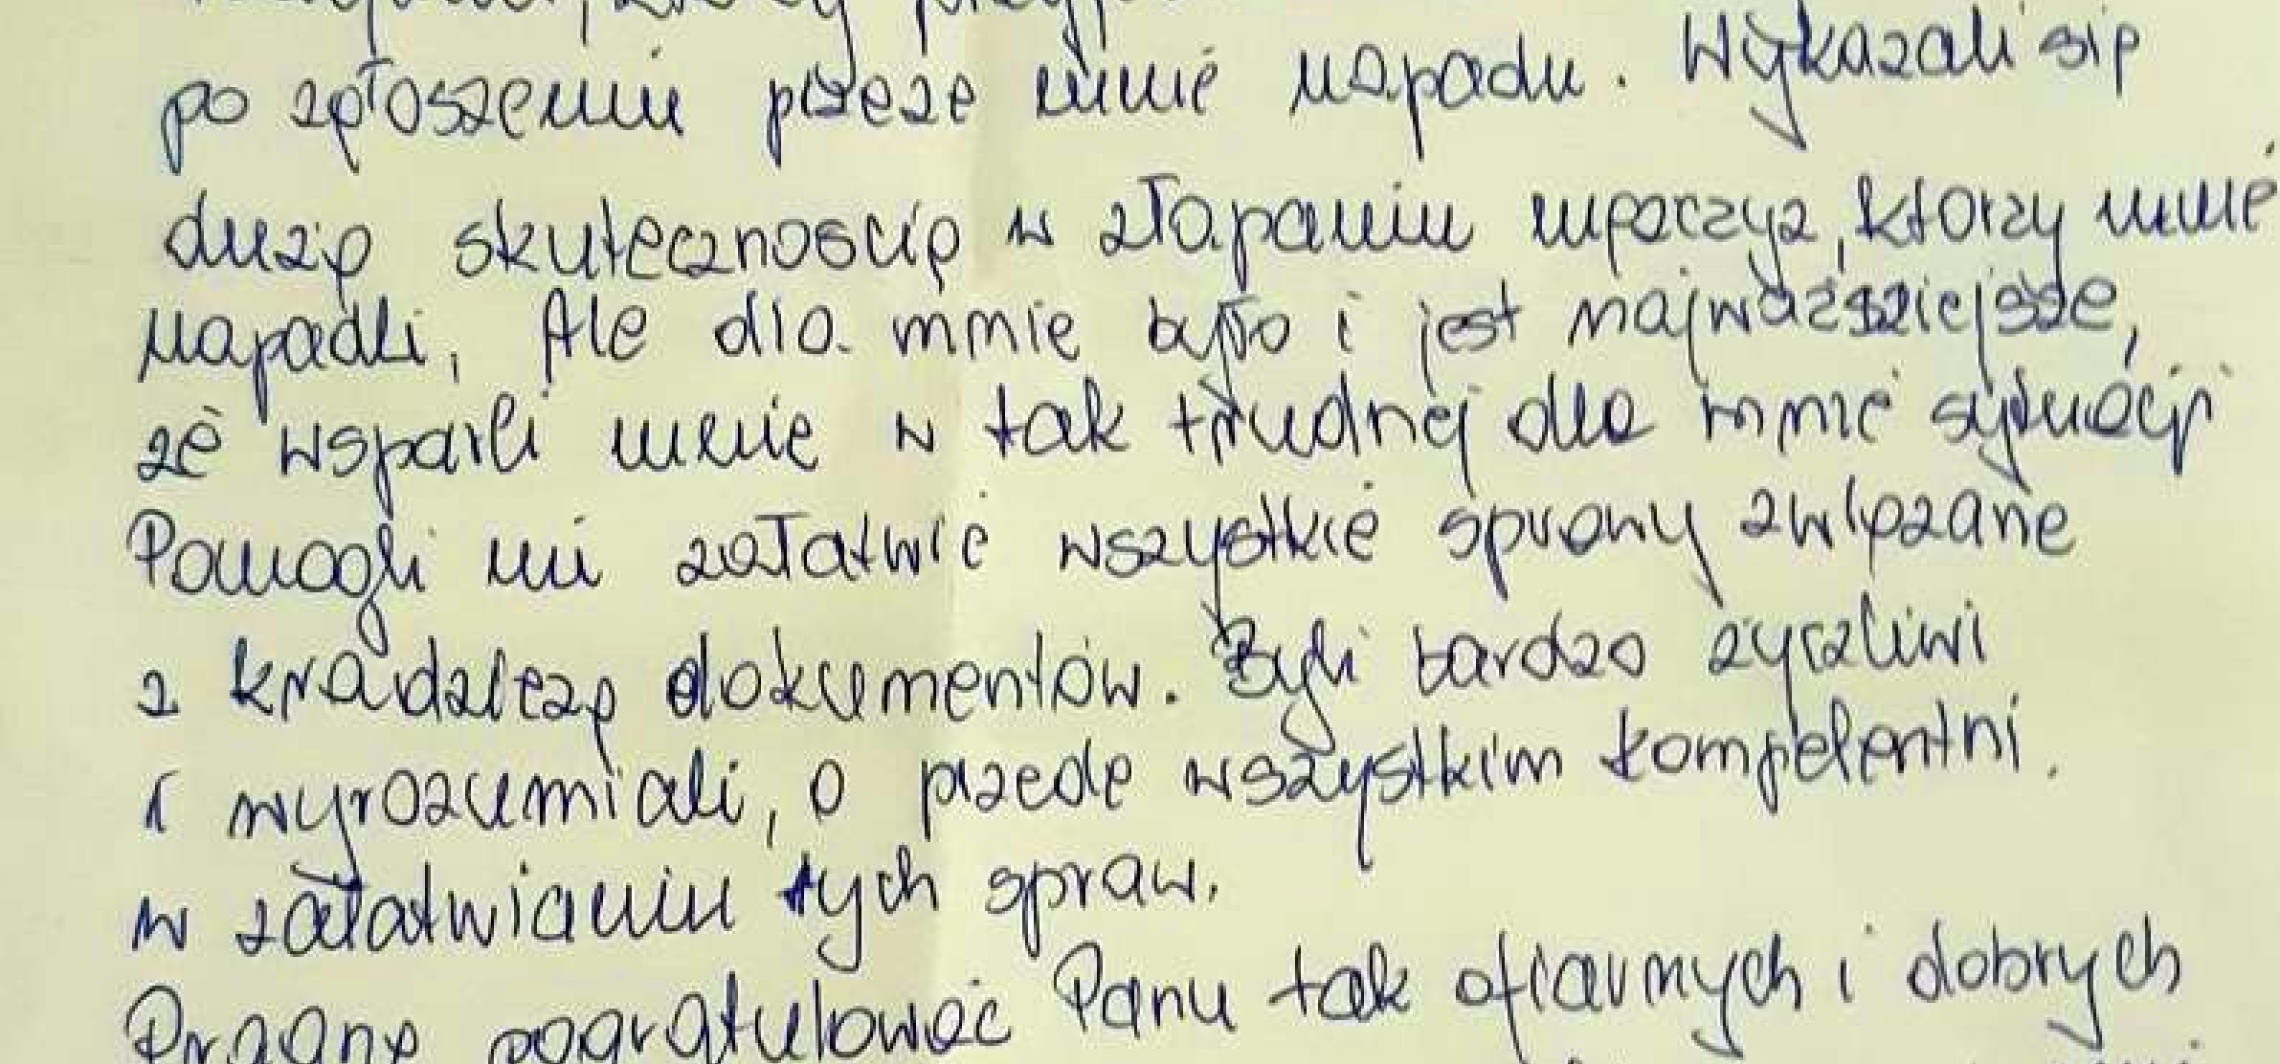 po zgłoszeniu przeze mnie napadu. Wykazali się
dużą skutecznością w złapaniu mężczyz, którzy mnie
napadli, Ale dla mnie było i jest najważniejsze,
że wsparli mnie w tak trudnej dla mnie sytuacji
Pomogli mi załatwić wszystkie sprawy związane
z kradzieżą dokumentów. Byli bardzo życzliwi
i wyrozumiali, a przede wszystkim kompetentni.
w załatwianiu tych spraw.
Pragnę pogratulować Panu tak ofiarnych i dobrych